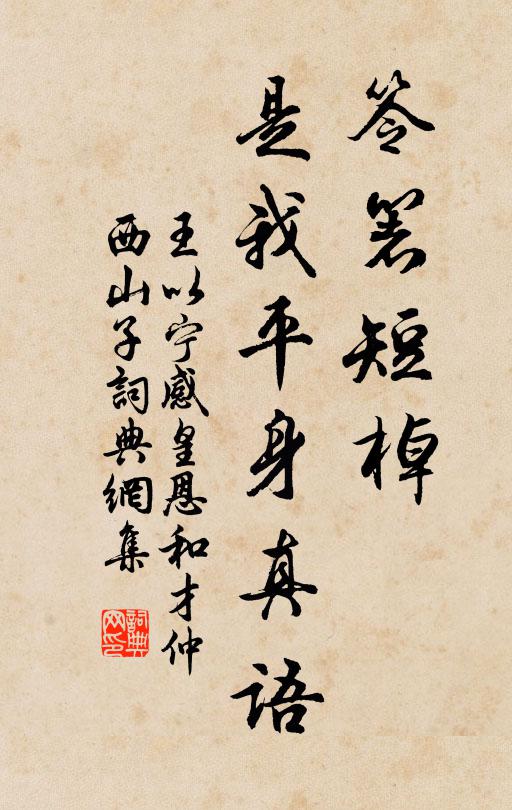 笭箸短棹
是我平身真語
王以宁感皇恩和才仲
西山子詞典網集
詞典
网印